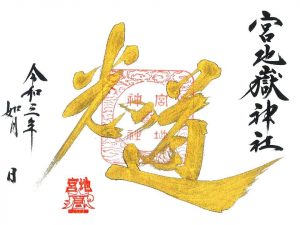 宮地嶽神社
光道
宮地嶽神社
令和三年
如月 日